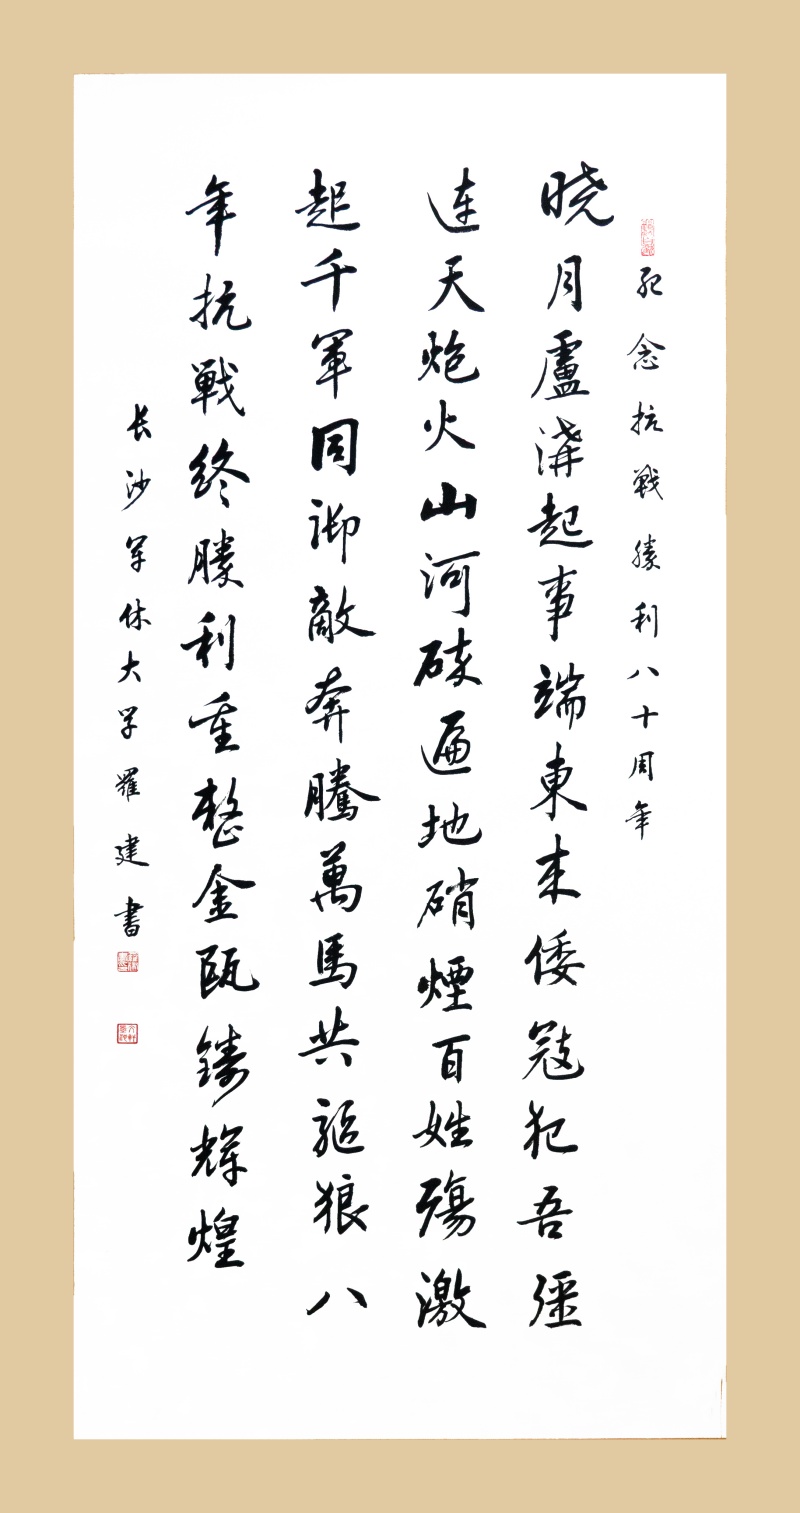 紀念抗戰勝利八十周年
晓月盧溝起事端東来倭寇犯吾彊
连天炮火山河碎遍地硝煙百姓殤激
起千軍同御敵奔騰萬馬共驅狼八
年抗戰终勝利重整金瓯鑄輝煌
长沙军休大学羅建書